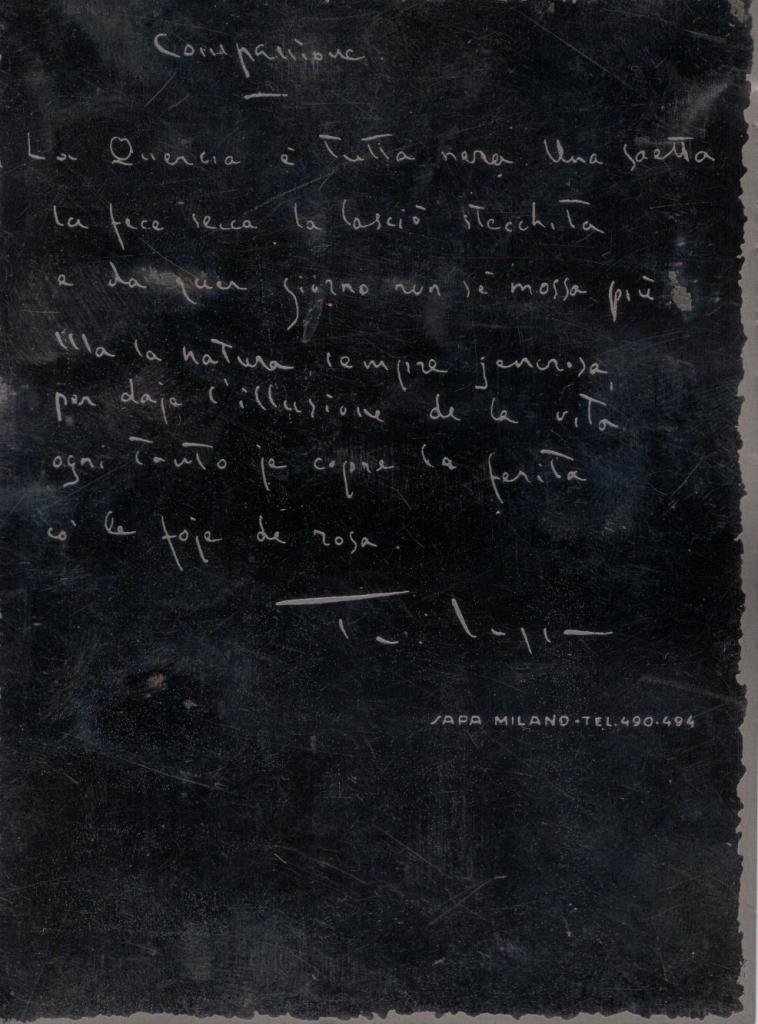 Compassione
La Quercia è tutta nera. Una saetta
la fece secca, la lasciò stecchita
e da quer giorno nun s'è mossa più
Ma la natura, sempre generosa,
per daje l'illusione de la vita
ogni tanto je copre la ferita
co' le foje de rosa.
SAPA MILANO•TEL.490-494